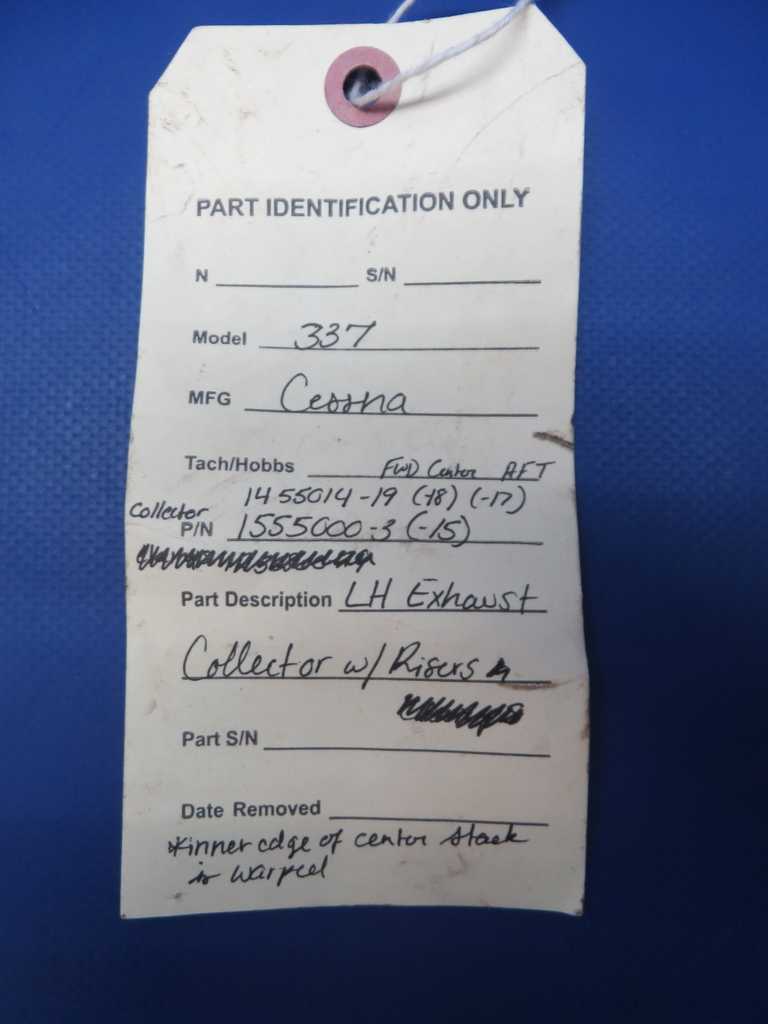 PART IDENTIFICATION ONLY
N S/N
Model 337
MFG Cessna
Tach/Hobbs FWD Center AFT
1455014-19 (-18) (-17)
Collector
P/N 1555000-3 (-15)
Part Description LH Exhaust
Collector w/ Risers
Part S/N
Date Removed
*inner edge of center stack
is warped